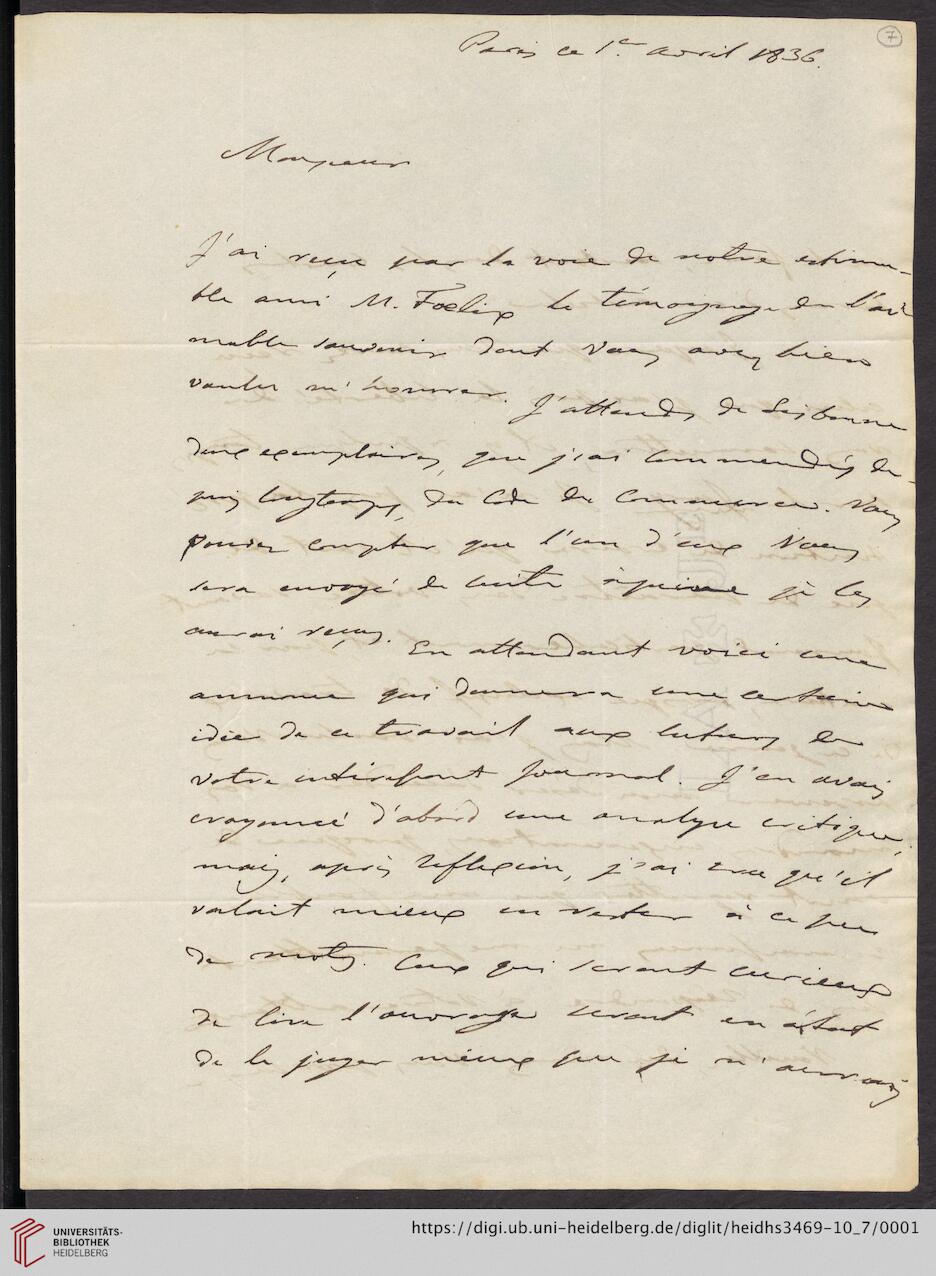 7
Paris ce 1er avril 1836.
Monsieur
J'ai reçu par la voie de notre estima-
ble ami M. Foelix le témoignage de l'ai
mable souvenir dont Vous avez bien
voulu m'honorer. J'attends de Lisbonne
deux exemplaires, que j'ai commendés de-
puis longtemps, du Code de Commerce. Vous
pouvez compter que l'un d'eux Vous
sera envoyé de suite à peine je les
aurai reçus. En attendant voici une
annonce qui donnera une certaine
idée de ce travail aux lecteurs de
votre intéressant journal. J'en avais
crayonné d'abord une analyse critique,
mais, après réflexion, j'ai cru qu'il
valait mieux en rester à ce peu
de mots. Ceux qui seront curieux
de lire l'ouvrage seront en état
de le juger mieux que je n'aurais
UNIVERSITÄTS-
BIBLIOTHEK
HEIDELBERG
https://digi.ub.uni-heidelberg.de/diglit/heidhs3469-10_7/0001